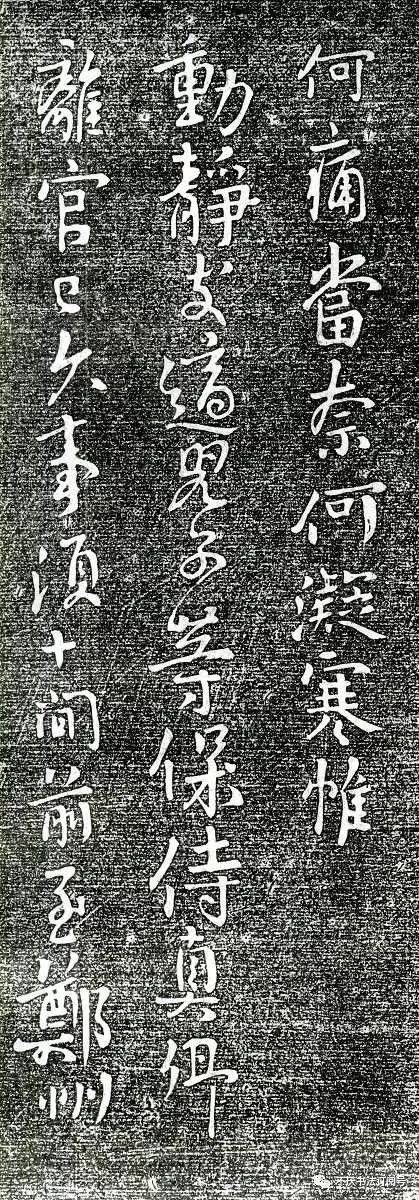 何痛當奈何凝寒惟
動靜支適男子等保侍真卿
離官已久事須十間前至鄭州